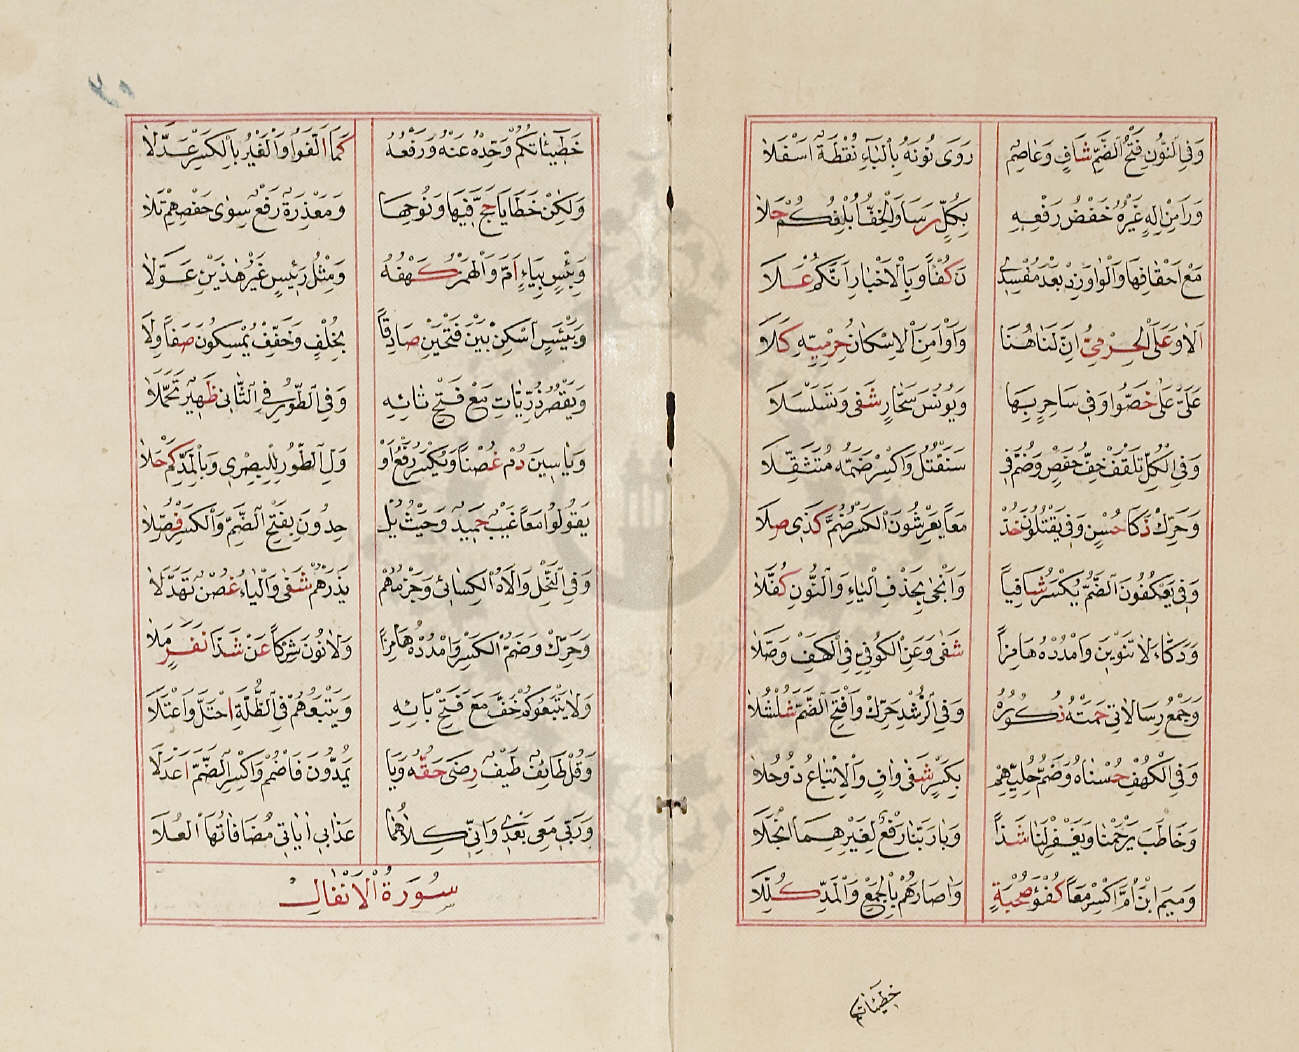 وَفِي النُّونِ فَتْحُ الضَّمِّ شَافٍ وَعَاصِمٌ رَوَى نُونَهُ بِالْبَاءِ نُقْطَةٌ اَسْفَلَا
وَرَا مِنْ اِلٰهٍ غَيْرُهُ خَفْضُ رَفْعِهِ بِكُلٍّ رَسَا وَالْخِفُّ اُبْلِغُكُمْ حَلَا
مَعَ اَحْقَافِهَا وَالْوَاوَ زِدْ بَعْدَ مُفْسِدِينَ كُفْأً وَبِالْاَخْبَارِ اَنَّكُمُ عَلَا
اَلَا وَعَلَى الْحِرْمِيُّ اِنَّ لَنَا هُنَا وَاَوْ اَمِنَ الْاِسْكَانُ حِرْمِيُّهِ كَلَا
عَلَيَّ عَلٰى خَصُّوا وَفِي سَاحِرٍ بِهَا وَيُونُسَ سَحَّارٍ شَفٰى وَتَسَلْسَلَا
وَفِي الْكُلِّ تَلْقَفْ خِفُّ حَفْصٍ وَضُمَّ فِي سَنَقْتُلُ وَاكْسِرْ ضَمَّهُ مُتَثَقِّلَا
وَحَرِّكْ ذَكَا حُسْنٍ وَفِي يَقْتُلُونَ خُذْ مَعًا يَعْرِشُونَ الْكَسْرُ ضُمَّ كَذِي صِلَا
وَفِي يَعْكُفُونَ الضَّمُّ يُكْسَرُ شَافِيًا وَاَنْجٰى بِحَذْفِ الْيَاءِ وَالنُّونِ كُفِّلَا
وَدَكَّاءَ لَا تَنْوِينَ وَامْدُدْهُ هَامِزًا شَفٰى وَعَنِ الْكُوفِيِّ فِي الْكَهْفِ وُصِّلَا
وَجَمْعُ رِسَالَاتِي حَمَتْهُ ذُكُورُهُ وَفِي الرُّشْدِ حَرِّكْ وَافْتَحِ الضَّمَّ شُلْشُلَا
وَفِي الْكَهْفِ حُسْنَاهُ وَضَمُّ حُلِيِّهِمْ بِكَسْرٍ شَفٰى وَافٍ وَالِاتْبَاعُ ذُو حُلَا
وَخَاطَبَ يَرْحَمْنَا وَيَغْفِرْ لَنَا شَذًا وَبَا رَبَّنَا رَفْعٌ لِغَيْرِهِمَا انْجَلَا
وَمِيمَ ابْنَ اُمَّ اكْسِرْ مَعًا كُفْؤَ صُحْبَةٍ وَاٰصَارَهُمْ بِالْجَمْعِ وَالْمَدِّ كُلِّلَا
خطيئاتكم
خَطِيئَاتُكُمْ وَحِّدْهُ عَنْهُ وَرَفْعُهُ كَمَا اَلَّفُوا وَالْغَيْرُ بِالْكَسْرِ عَدَّلَا
وَلٰكِنْ خَطَايَا حَجَّ فِيهَا وَنُوحِهَا وَمَعْذِرَةٌ رَفْعٌ سِوٰى حَفْصِهِمْ تَلَا
وَبِيسٍ بِيَاءٍ اَمَّ وَالْهَمْزُ كَهْفُهُ وَمِثْلُ رَئِيسٍ غَيْرُ هٰذَيْنِ عَوَّلَا
وَبَيْئَسٍ اسْكِنْ بَيْنَ فَتْحَيْنِ صَادِقًا بِخُلْفٍ وَخَفِّفْ يُمْسِكُونَ صَفَا وِلَا
وَيَقْصُرُ ذُرِّيَّاتِ مَعْ فَتْحِ تَائِهِ وَفِي الطُّورِ فِي الثَّانِي ظَهِيرٌ تَحَمَّلَا
وَيَاسِينَ دُمْ غُصْنًا وَيُكْسَرُ رَفْعُ اَوْ وَلِ الطُّورِ لِلْبَصْرِي وَبِالْمَدِّ كَمْ حَلَا
يَقُولُوا مَعًا غَيْبٌ حَمِيدٌ وَحَيْثُ يُلْ حِدُونَ بِفَتْحِ الضَّمِّ وَالْكَسْرِ فُصِّلَا
وَفِي النَّحْلِ وَالَاهُ الْكِسَائِي وَجَزْمُهُمْ يَذَرْهُمْ شَفٰى وَالْيَاءُ غُصْنٌ تَهَدَّلَا
وَحَرِّكْ وَضُمَّ الْكَسْرَ وَامْدُدْهُ هَامِزًا وَلَا نُونَ شِرْكًا عَنْ شَذَا نَفَرٍ مَلَا
وَلَا يَتْبَعُوكُمْ خَفَّ مَعَ فَتْحِ بَائِهِ وَيَتْبَعُهُمْ فِي الظُّلَّةِ احْتَلَّ وَاعْتَلَا
وَقُلْ طَائِفٌ طَيْفٌ رِضًى حَقُّهُ وَيَا يَمُدُّونَ فَاضْمُمْ وَاكْسِرِ الضَّمَّ اَعْدَلَا
وَرَبِّي مَعِي بَعْدِي وَاِنِّي كِلَاهُمَا عَذَابِي اٰيَاتِي مُضَافَاتُهَا الْعُلَا
سُورَةُ الْاَنْفَالِ